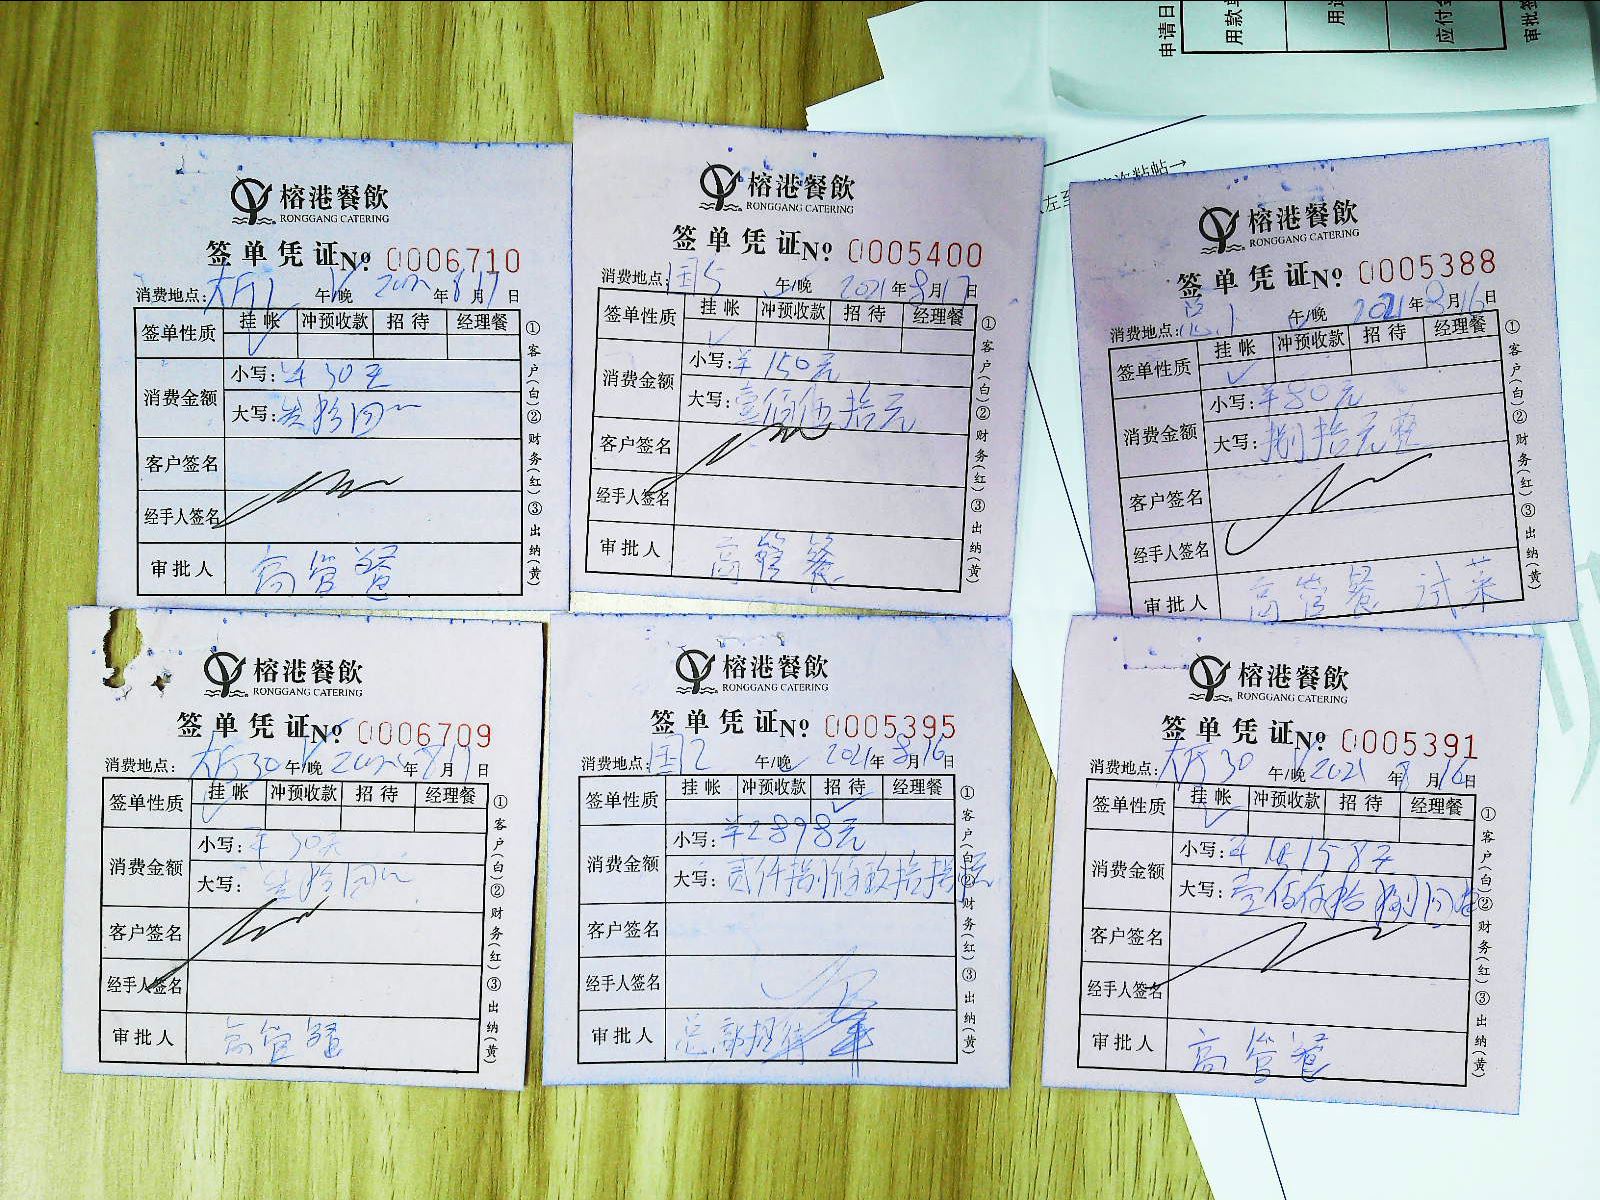 申请日
用款单
用途
应付金
审批签
榕港餐飲
RONGGANG CATERING
签单凭证 No 0006710
消费地点: 大厅1 午/晚 2021 年 8 月 17 日
签单性质 挂帐 冲预收款 招待 经理餐
消费金额
小写: ¥30元
大写: 叁拾圆
客户签名
经手人签名
审批人 高管餐
①客户(白)②财务(红)③出纳(黄)
榕港餐飲
RONGGANG CATERING
签单凭证 No 0005400
消费地点: 国5 午/晚 2021 年 8 月 17 日
签单性质 挂帐 冲预收款 招待 经理餐
消费金额
小写: ¥150元
大写: 壹佰伍拾元
客户签名
经手人签名
审批人 高管餐
①客户(白)②财务(红)③出纳(黄)
粘帖→
左至
榕港餐飲
RONGGANG CATERING
签单凭证 No 0005388
消费地点: 午/晚 2021 年 8 月 16 日
签单性质 挂帐 冲预收款 招待 经理餐
消费金额
小写: ¥80元
大写: 捌拾元整
客户签名
经手人签名
审批人 高管餐 试菜
①客户(白)②财务(红)③出纳(黄)
榕港餐飲
RONGGANG CATERING
签单凭证 No 0006709
消费地点: 大厅30 午/晚 2021 年 8 月 17 日
签单性质 挂帐 冲预收款 招待 经理餐
消费金额
小写: ¥30元
大写: 叁拾圆
客户签名
经手人签名
审批人 高管餐
①客户(白)②财务(红)③出纳(黄)
榕港餐飲
RONGGANG CATERING
签单凭证 No 0005395
消费地点: 国2 午/晚 2021 年 8 月 16 日
签单性质 挂帐 冲预收款 招待 经理餐
消费金额
小写: ¥2898元
大写: 贰仟捌佰玖拾捌元
客户签名
经手人签名
审批人 总部招待
①客户(白)②财务(红)③出纳(黄)
榕港餐飲
RONGGANG CATERING
签单凭证 No 0005391
消费地点: 大厅30 午/晚 2021 年 8 月 16 日
签单性质 挂帐 冲预收款 招待 经理餐
消费金额
小写: ¥158元
大写: 壹佰伍拾捌圆
客户签名
经手人签名
审批人 高管餐
①客户(白)②财务(红)③出纳(黄)